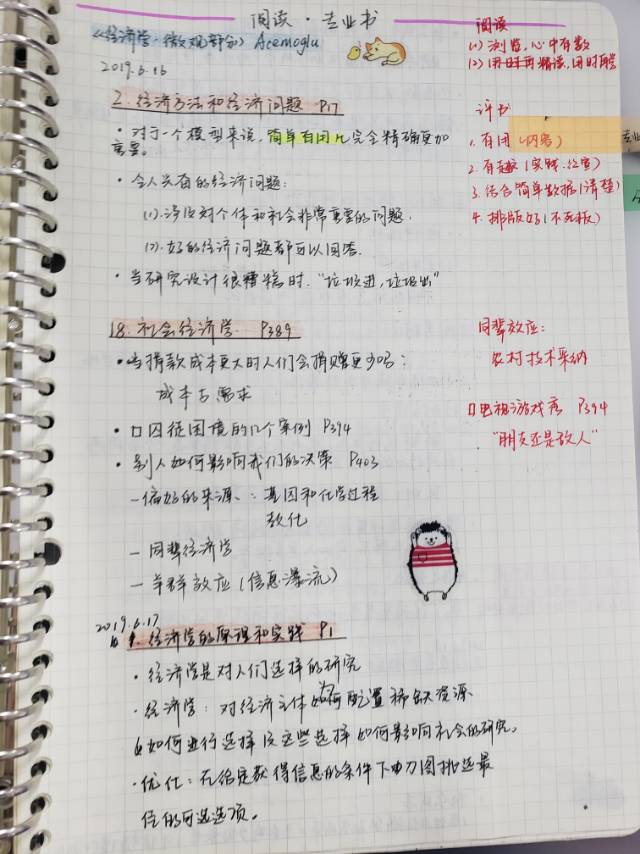 阅读·专业书
《经济学·微观部分》Acemoglu
2019.6.16
2. 经济方法和经济问题 P17
·对于一个模型来说，简单有用比完全精确更加
重要。
·令人兴奋的经济问题：
(1). 涉及对个体和社会非常重要的问题.
(2). 好的经济问题都可以回答.
·当研究设计很糟糕时，"垃圾进，垃圾出"
18. 社会经济学 P389
·当捐款成本更大时人们会捐赠更少吗：
成本与需求
·口囚徒困境的几个案例 P394
·别人如何影响我们的决策 P403
-偏好的来源：基因和化学过程
教化
-同辈经济学
-羊群效应(信息瀑流)
2019.6.17
1. 经济学的原理和实践 P1
·经济学是对人们选择的研究
·经济学：对经济主体如何为配置稀缺资源
如何进行选择及这些选择如何影响社会的研究。
·优化：在给定获得信息的条件下力图挑选最
佳的可选选项。
阅读
(1) 浏览，心中有数
(2) 精读，用时再尝
评书
1. 有用(内容)
2. 有趣(实践·经验)
3. 结合简单数据(清楚)
4. 排版好(不死板)
专业
同辈效应：
农村技术采纳
口电视游戏秀 P394
"朋友还是敌人"